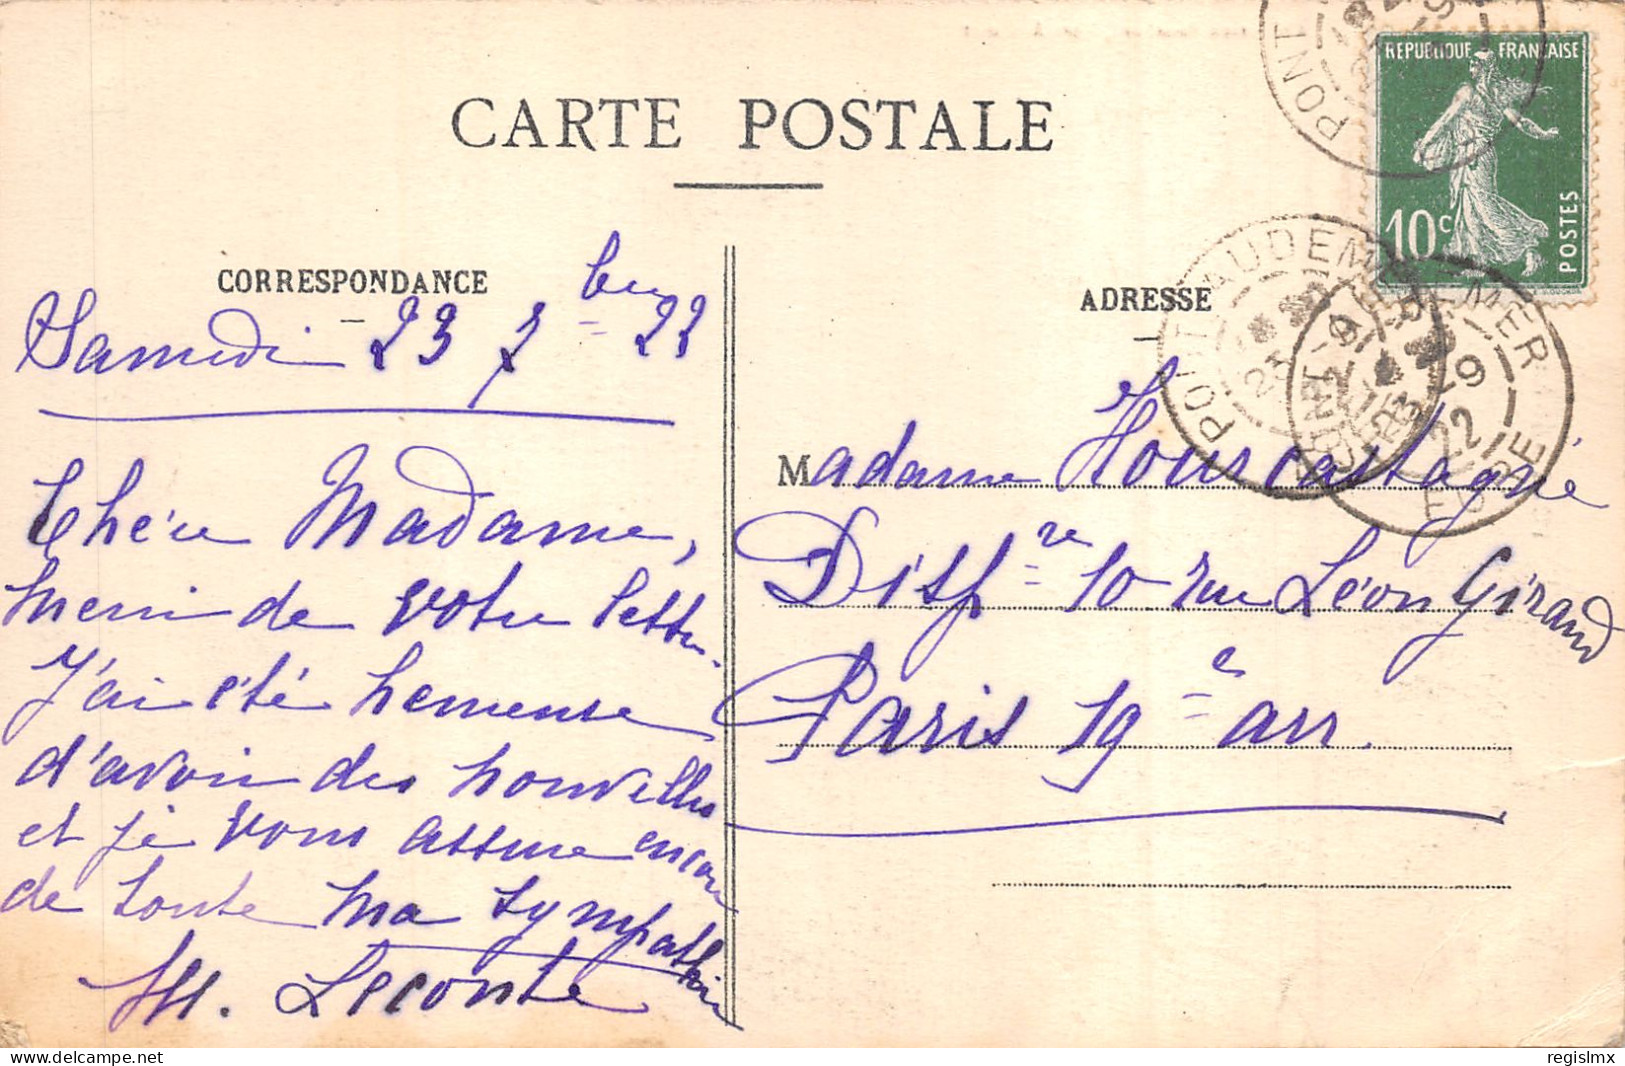 CARTE POSTALE
CORRESPONDANCE
Samedi 23 7bre 22
Chère Madame,
Merci de votre lettre.
J'ai été heureuse
d'avoir des nouvelles
et je vous assure encore
de toute ma sympathie
M. Leconte
REPUBLIQUE FRANÇAISE
10c
POSTES
PONT
PONT-AUDEMER
23 -9
22
EURE
ADRESSE
Madame Hourcastagné
Disp re 10 rue Léon Giraud
Paris 19e arr.
regislmx
delcampe.net